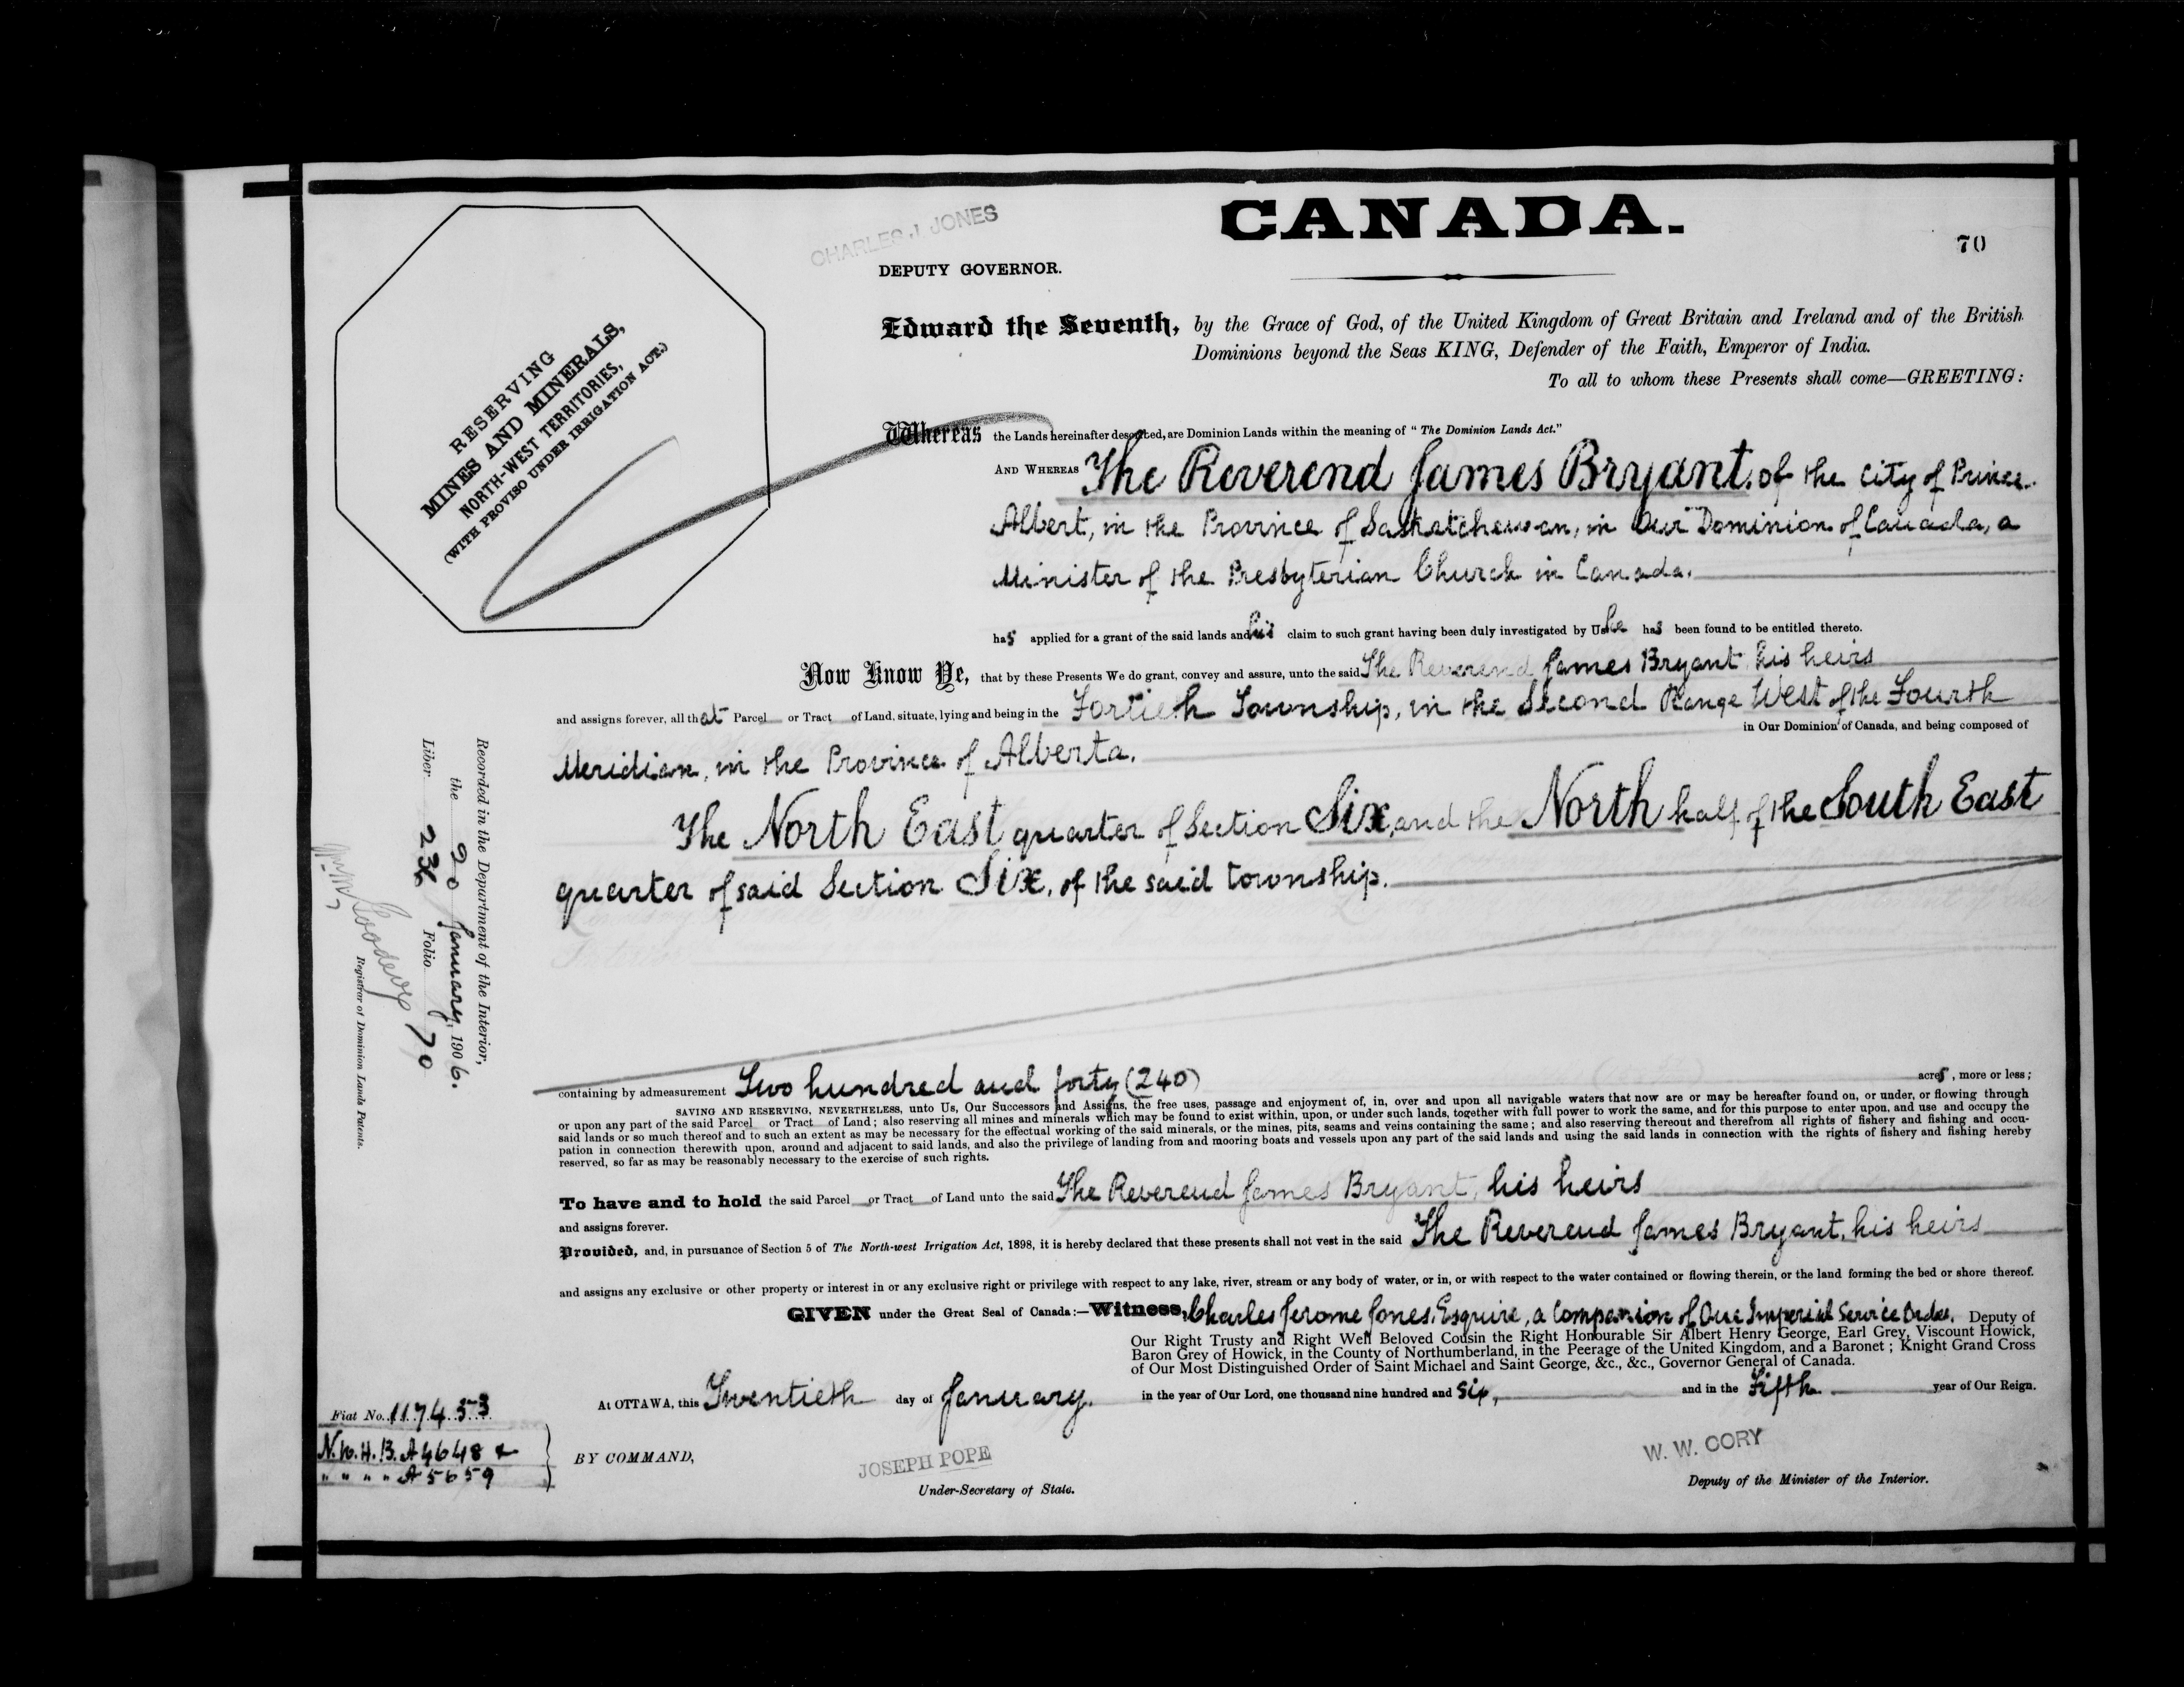 CANADA.
70
CHARLES J. JONES
DEPUTY GOVERNOR.
RESERVING
MINES AND MINERALS,
NORTH-WEST TERRITORIES,
(WITH PROVISO UNDER IRRIGATION ACT.)
Edward the Seventh, by the Grace of God, of the United Kingdom of Great Britain and Ireland and of the British
Dominions beyond the Seas KING, Defender of the Faith, Emperor of India.
To all to whom these Presents shall come—GREETING:
Whereas the Lands hereinafter described, are Dominion Lands within the meaning of "The Dominion Lands Act."
AND WHEREAS The Reverend James Bryant, of the City of Prince
Albert, in the Province of Saskatchewan, in Our Dominion of Canada, a
Minister of the Presbyterian Church in Canada.
has applied for a grant of the said lands and his claim to such grant having been duly investigated by Us he has been found to be entitled thereto.
Now Know Ye, that by these Presents We do grant, convey and assure, unto the said The Reverend James Bryant, his heirs
and assigns forever, all that Parcel or Tract of Land, situate, lying and being in the Fortieth Township, in the Second Range West of the Fourth
in Our Dominion of Canada, and being composed of
Meridian, in the Province of Alberta.
The North East quarter of Section Six, and the North half of the South East
quarter of said Section Six, of the said township.
containing by admeasurement Two hundred and forty (240) acres, more or less;
SAVING AND RESERVING, NEVERTHELESS, unto Us, Our Successors and Assigns, the free uses, passage and enjoyment of, in, over and upon all navigable waters that now are or may be hereafter found on, or under, or flowing through
or upon any part of the said Parcel or Tract of Land; also reserving all mines and minerals which may be found to exist within, upon, or under such lands, together with full power to work the same, and for this purpose to enter upon, and use and occupy the
said lands or so much thereof and to such an extent as may be necessary for the effectual working of the said minerals, or the mines, pits, seams and veins containing the same; and also reserving thereout and therefrom all rights of fishery and fishing and occu-
pation in connection therewith upon, around and adjacent to said lands, and also the privilege of landing from and mooring boats and vessels upon any part of the said lands and using the said lands in connection with the rights of fishery and fishing hereby
reserved, so far as may be reasonably necessary to the exercise of such rights.
To have and to hold the said Parcel or Tract of Land unto the said The Reverend James Bryant, his heirs
and assigns forever.
Provided, and, in pursuance of Section 5 of The North-west Irrigation Act, 1898, it is hereby declared that these presents shall not vest in the said The Reverend James Bryant, his heirs
and assigns any exclusive or other property or interest in or any exclusive right or privilege with respect to any lake, river, stream or any body of water, or in, or with respect to the water contained or flowing therein, or the land forming the bed or shore thereof.
GIVEN under the Great Seal of Canada:—Witness, Charles Jerome Jones, Esquire, a Companion of Our Imperial Service Order, Deputy of
Our Right Trusty and Right Well Beloved Cousin the Right Honourable Sir Albert Henry George, Earl Grey, Viscount Howick,
Baron Grey of Howick, in the County of Northumberland, in the Peerage of the United Kingdom, and a Baronet; Knight Grand Cross
of Our Most Distinguished Order of Saint Michael and Saint George, &c., &c., Governor General of Canada.
At OTTAWA, this Twentieth day of January, in the year of Our Lord, one thousand nine hundred and six, and in the Fifth year of Our Reign.
BY COMMAND,
JOSEPH POPE
Under-Secretary of State.
W. W. CORY
Deputy of the Minister of the Interior.
Recorded in the Department of the Interior,
the 20 January, 1906.
Liber 236 Folio 70
Goodeve
Registrar of Dominion Lands Patents.
Fiat No. 117453
N.W.H.B. A4648 &
" " " " A5659